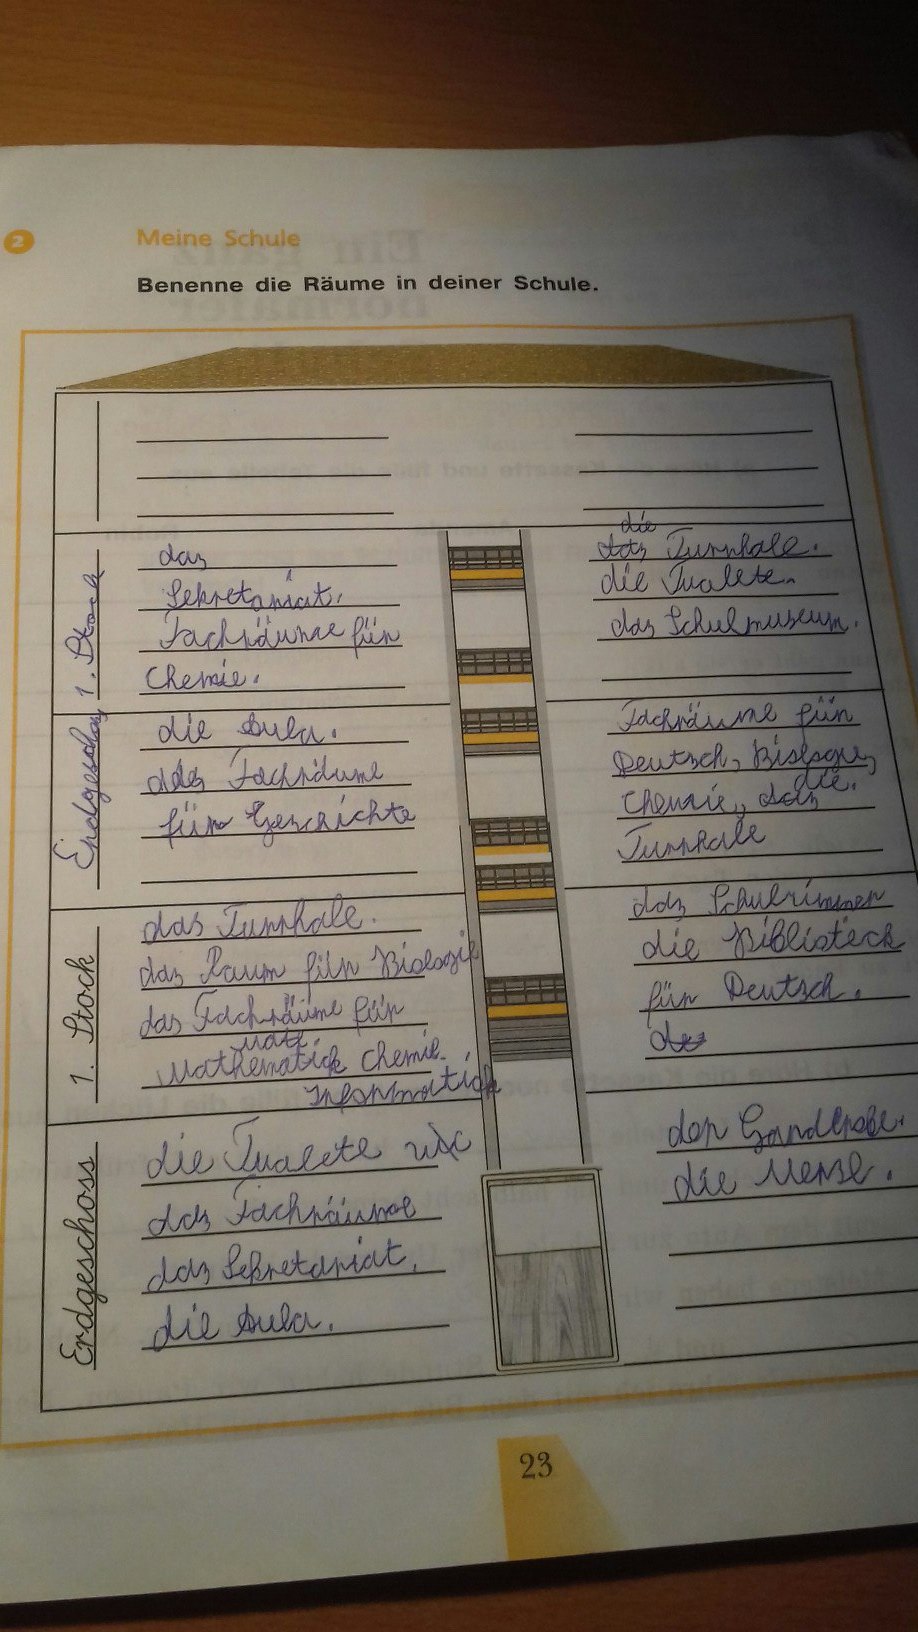 2
Meine Schule
Benenne die Räume in deiner Schule.
1. Stock
das
Sekretariat.
Fachräume für
Chemie.
die
das Turnhale.
die Tualete.
das Schulmuseum.
Erdgeschoss
die Aula.
das Fachräume
für Geschichte
Fachräume für
Deutsch, Biologie,
Chemie, das
die.
Turnhale
1. Stock
das Turnhale.
das Raum für Biologie
das Fachräume für
Mathematick Chemie.
Informatick
das Schulzimmer
die Biblioteck
für Deutsch.
Erdgeschoss
die Tualete
das Fachräume
das Sekretariat.
die Aula.
der Garderobe.
die Mense.
23